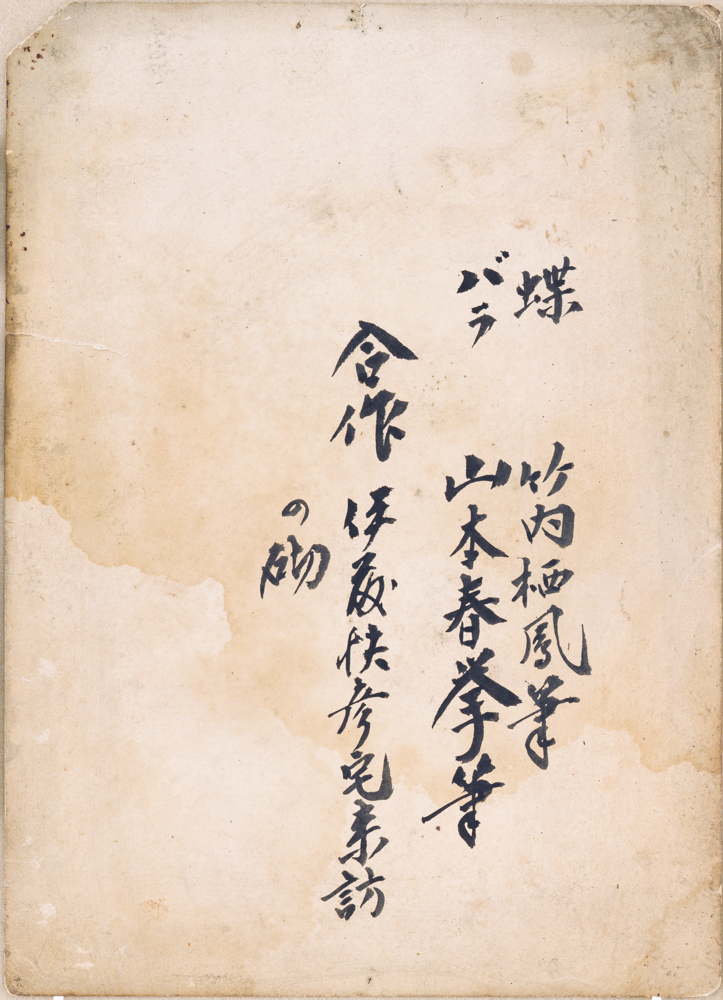 蝶 竹内栖鳳筆
バラ 山本春挙筆
合作 伊藤快彦宅来訪
の砌